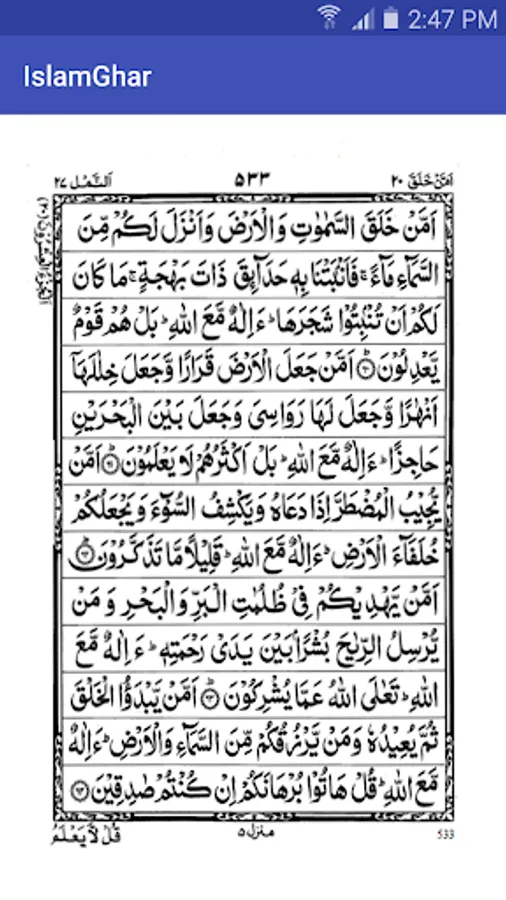 2:47 PM
IslamGhar
اَمَّنْ خَلَقَ ٢٠ ٥٣٣ اَلنَّمْل ٢٧
اَمَّنْ خَلَقَ السَّمٰوٰتِ وَالْاَرْضَ وَاَنْزَلَ لَكُمْ مِّنَ
السَّمَآءِ مَآءً ۚ فَاَنْۢبَتْنَا بِهٖ حَدَآئِقَ ذَاتَ بَهْجَةٍ ۚ مَا كَانَ
لَكُمْ اَنْ تُنْۢبِتُوْا شَجَرَهَا ؕ ءَاِلٰهٌ مَّعَ اللّٰهِ ؕ بَلْ هُمْ قَوْمٌ
يَّعْدِلُوْنَ ۝٦٠ اَمَّنْ جَعَلَ الْاَرْضَ قَرَارًا وَّجَعَلَ خِلٰلَهَاۤ
اَنْهٰرًا وَّجَعَلَ لَهَا رَوَاسِيَ وَجَعَلَ بَيْنَ الْبَحْرَيْنِ
حَاجِزًا ؕ ءَاِلٰهٌ مَّعَ اللّٰهِ ؕ بَلْ اَكْثَرُهُمْ لَا يَعْلَمُوْنَ ۝٦١ اَمَّنْ
يُّجِيْبُ الْمُضْطَرَّ اِذَا دَعَاهُ وَيَكْشِفُ السُّوْٓءَ وَيَجْعَلُكُمْ
خُلَفَآءَ الْاَرْضِ ؕ ءَاِلٰهٌ مَّعَ اللّٰهِ ؕ قَلِيْلًا مَّا تَذَكَّرُوْنَ ۝٦٢
اَمَّنْ يَّهْدِيْكُمْ فِيْ ظُلُمٰتِ الْبَرِّ وَالْبَحْرِ وَمَنْ
يُّرْسِلُ الرِّيٰحَ بُشْرًۢا بَيْنَ يَدَيْ رَحْمَتِهٖ ؕ ءَاِلٰهٌ مَّعَ
اللّٰهِ ؕ تَعٰلَى اللّٰهُ عَمَّا يُشْرِكُوْنَ ۝٦٣ اَمَّنْ يَّبْدَؤُا الْخَلْقَ
ثُمَّ يُعِيْدُهٗ وَمَنْ يَّرْزُقُكُمْ مِّنَ السَّمَآءِ وَالْاَرْضِ ؕ ءَاِلٰهٌ
مَّعَ اللّٰهِ ؕ قُلْ هَاتُوْا بُرْهَانَكُمْ اِنْ كُنْتُمْ صٰدِقِيْنَ ۝٦٤
533 منزل ٥ قُلْ لَّا يَعْلَمُ